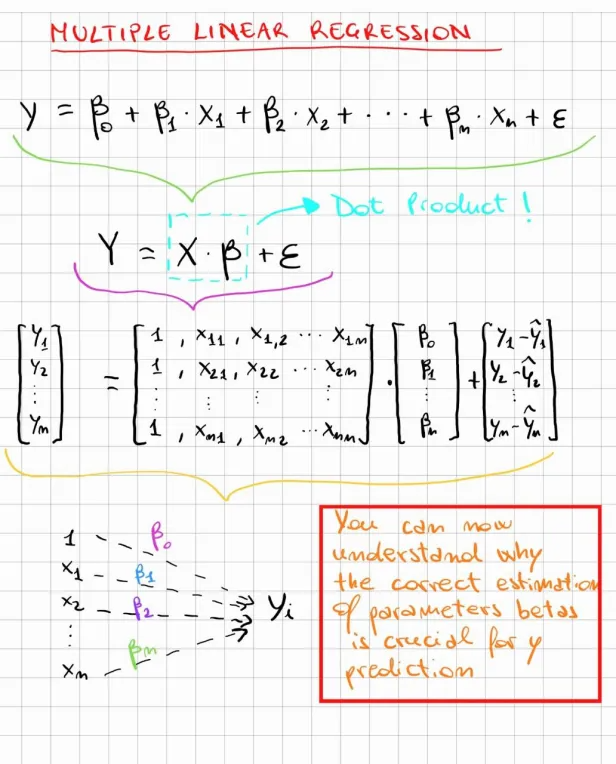 MULTIPLE LINEAR REGRESSION
y = β₀ + β₁ · x₁ + β₂ · x₂ + · · · + βₙ · xₙ + ε
Dot Product !
Y = X · β + ε
[y₁ y₂ ⋮ yₙ] = [1 , x₁₁ , x₁,₂ ··· x₁ₙ ; 1 , x₂₁ , x₂₂ ··· x₂ₙ ; ⋮ ⋮ ⋮ ⋮ ; 1 , xₙ₁ , xₙ₂ ··· xₙₙ] · [β₀ β₁ ⋮ βₙ] + [y₁-ŷ₁ y₂-ŷ₂ ⋮ yₙ-ŷₙ]
1 β₀
x₁ β₁
x₂ β₂ yᵢ
⋮
xₙ βₙ
You can now
understand why
the correct estimation
of parameters betas
is crucial for y
prediction